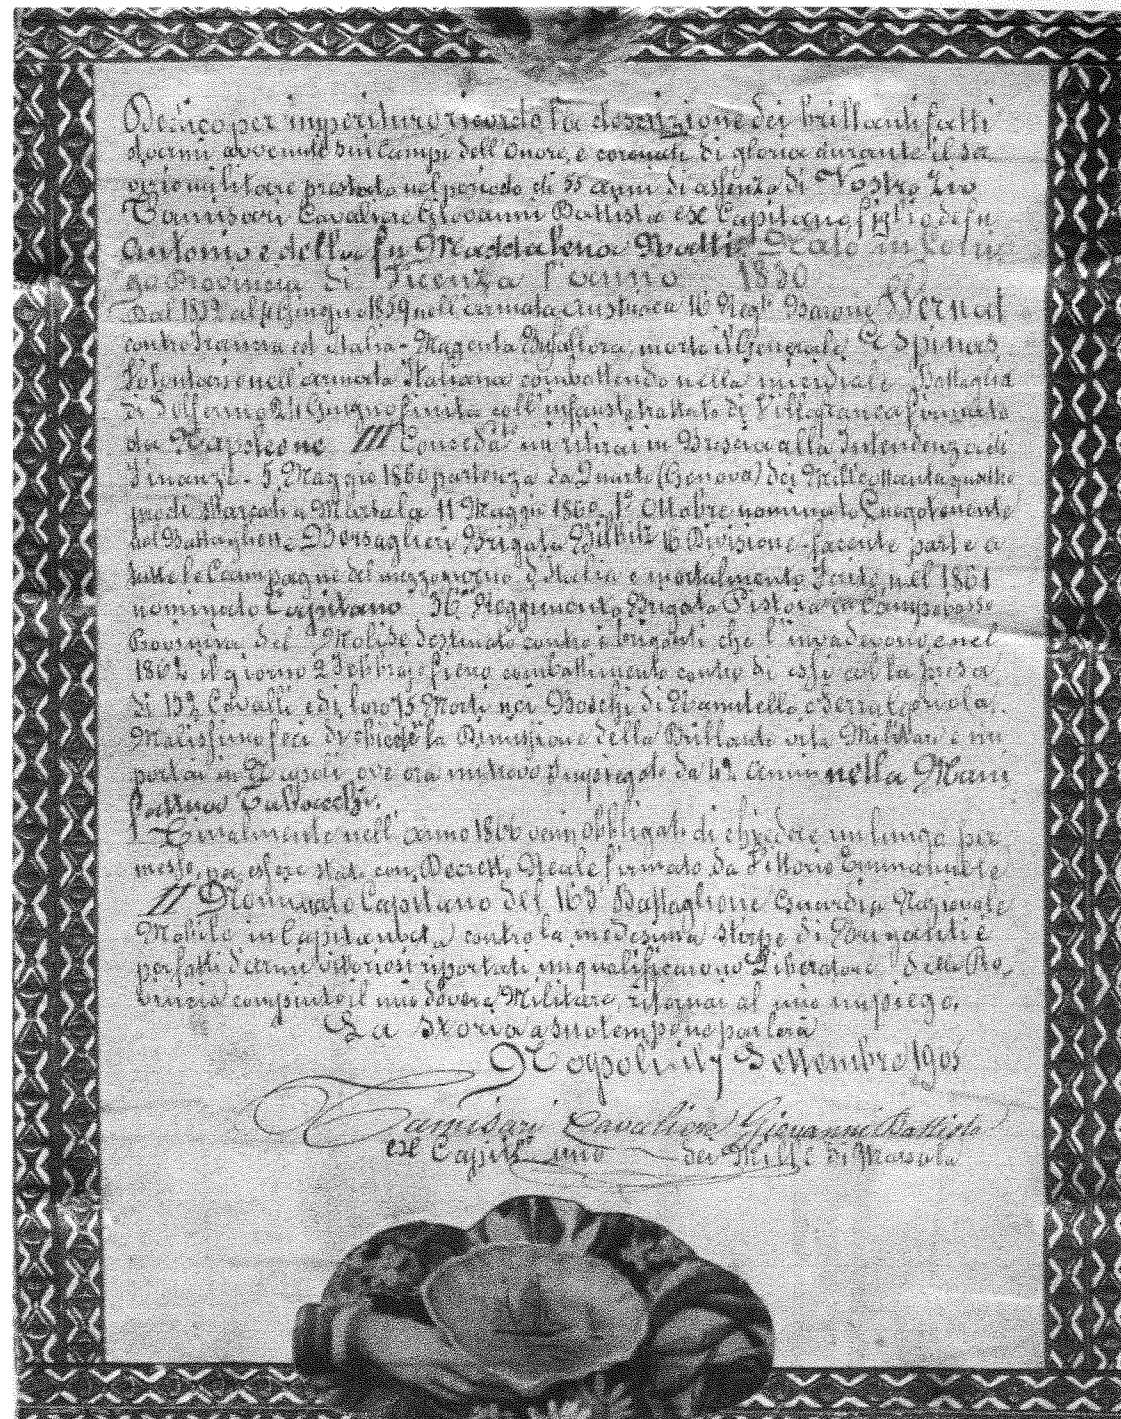 Dedico per imperituro ricordo la descrizione dei brillanti fatti
d'armi avvenute sui Campi dell'Onore, e coronati di gloria durante il Se
vizio militare prestato nel periodo di 55 anni di assenza di Vostro Zio
Tamisari Cavaliere Giovanni Battista ex Capitano figlio de fu
Antonio e della fu Maddalena Nato in Loni
go Provincia di Vicenza l'anno 1830
Dal 1852 al Giugno 1859 nell'armata Austriaca 16 Regto Barone Wernat
contro Francia ed Italia - Magenta Buffalora, morto il Generale Espinas
Volontario nell'armata Italiana combattendo nella micidiale Battaglia
di Solferino 24 Giugno finita coll'infausto trattato di Villafranca firmato
da Napoleone III mi ritirai in Brescia alla Intendenza di
Finanze - 5 Maggio 1860 partenza da Quarto (Genova) dei Mille ottantaquattro
Marsala 11 Maggio 1860. 1º Ottobre nominato Luogotenente
del Battaglione Bersaglieri Brigata 16 Divisione facente parte a
tutte le Campagne del mezzogiorno d'Italia e mortalmente ferito, nel 1861
nominato Capitano 36 Reggimento Brigata Pistoia in Campobasso
Provincia del Molise destinato contro i briganti che l'invadevono, e nel
1862 il giorno 2 Febbrajo fiero combattimento contro di essi colla presa
di 132 Cavalli e di loro 75 Morti nei Boschi di e Serracapriola.
Malissimo feci di chiede la Dimissione della Brillante vita Militare e mi
portai in Napoli, ove ora mi trovo impiegato da 42 Anni nella Mani
fattura Tabacchi.
Finalmente nell'anno 1866 venni obbligato di chiedere un lungo per
messo, per essere stato con Decretto Reale firmato da Vittorio Emmanuele
II Nominato Capitano del 163 Battaglione Guardia Nazionale
Mobile in Capitanata contro la medesima sterpe di Briganti e
per fatti d'armi vittoriosi riportati mi qualificarono Liberatore della Pro
vincia compiuto il mio dovere Militare, ritornai al mio impiego.
La Storia a suo tempo ne parlerà
Napoli li 7 Settembre 1905
Tamisari Cavaliere Giovanni Battista
ex Capitano dei Mille di Marsala